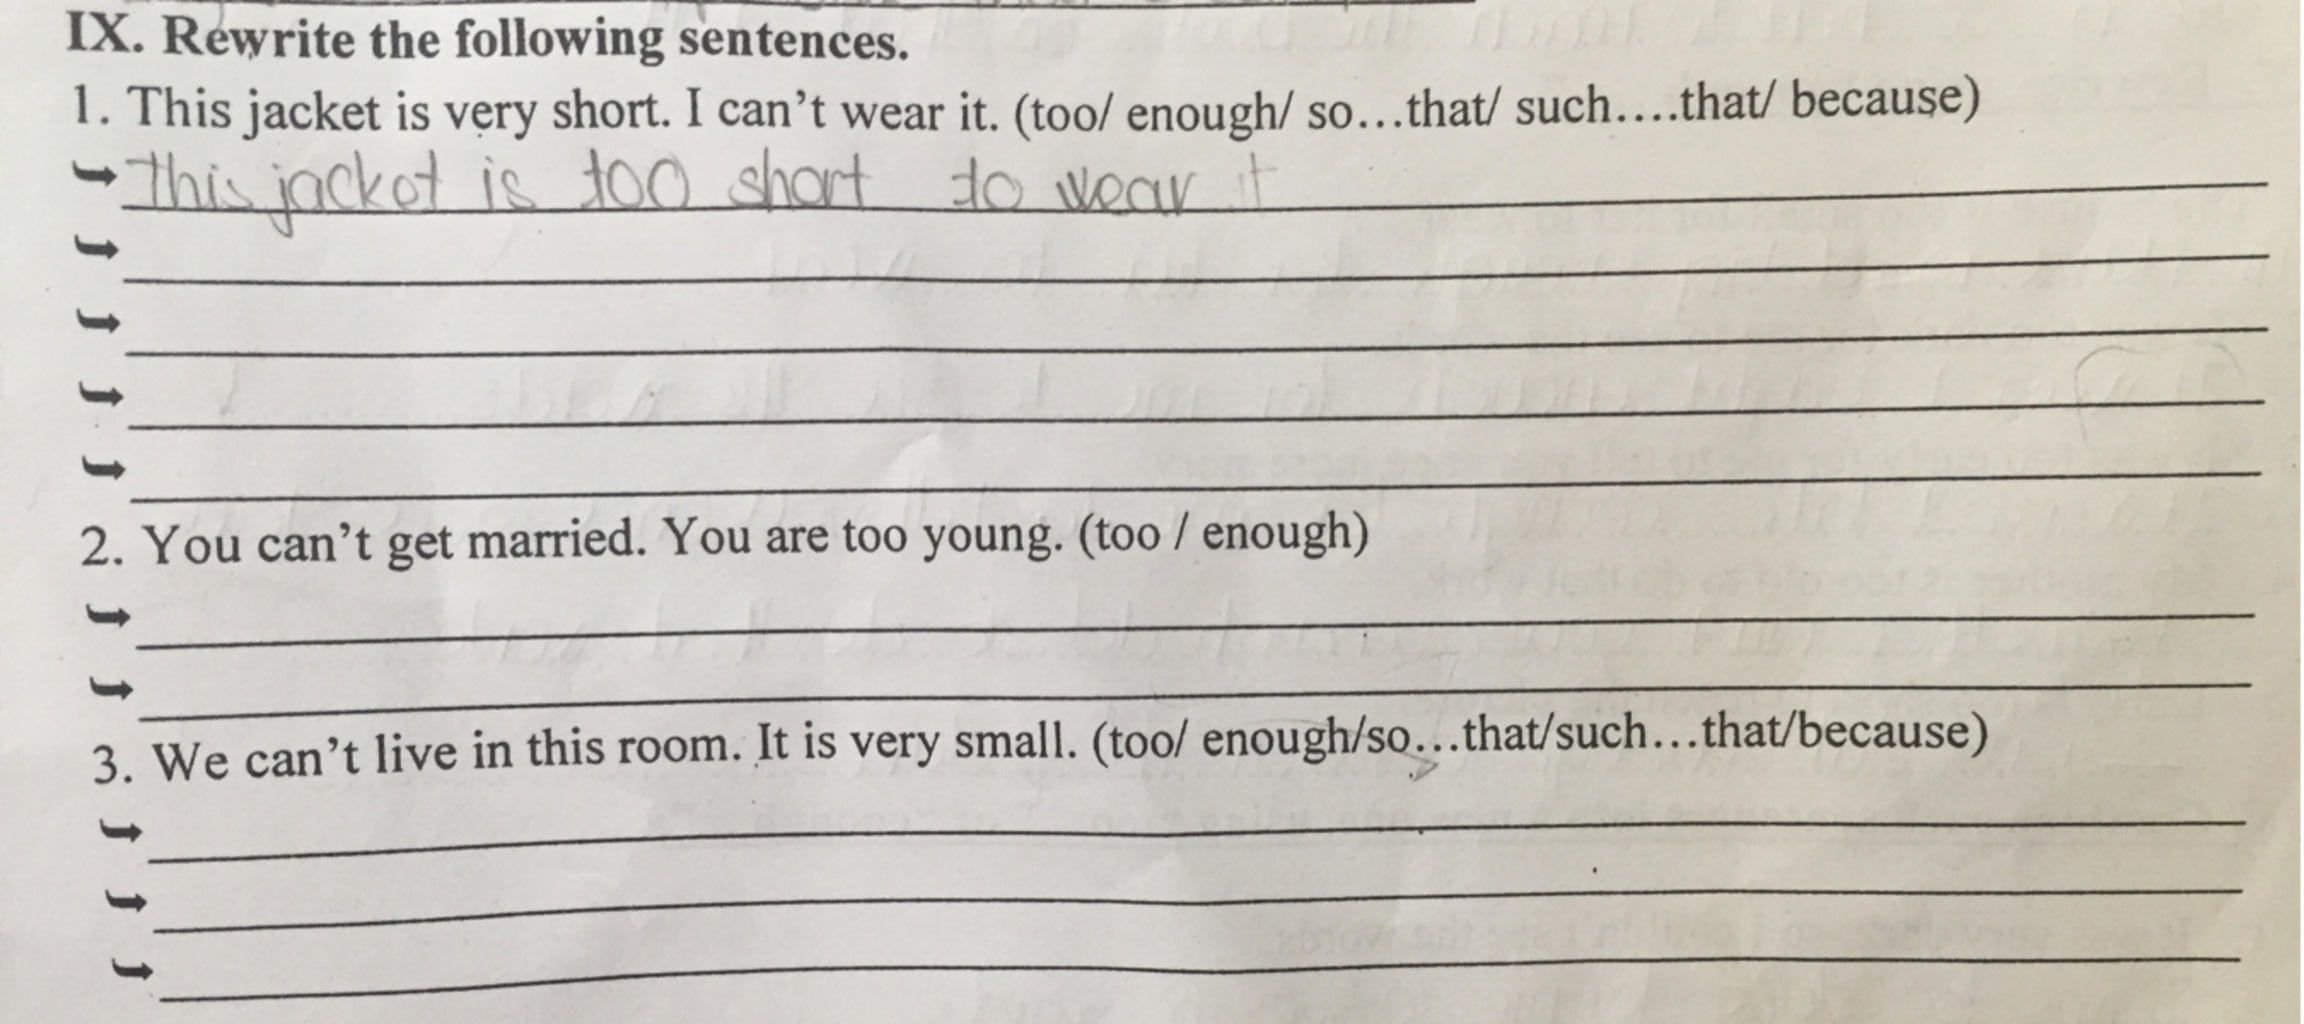 IX. Rewrite the following sentences.
1. This jacket is very short. I can't wear it. (too/ enough/ so...that/ such....that/ because)
➥ This jacket is too short to wear it
➥
➥
➥
➥
2. You can't get married. You are too young. (too / enough)
➥
➥
3. We can't live in this room. It is very small. (too/ enough/so...that/such...that/because)
➥
➥
➥